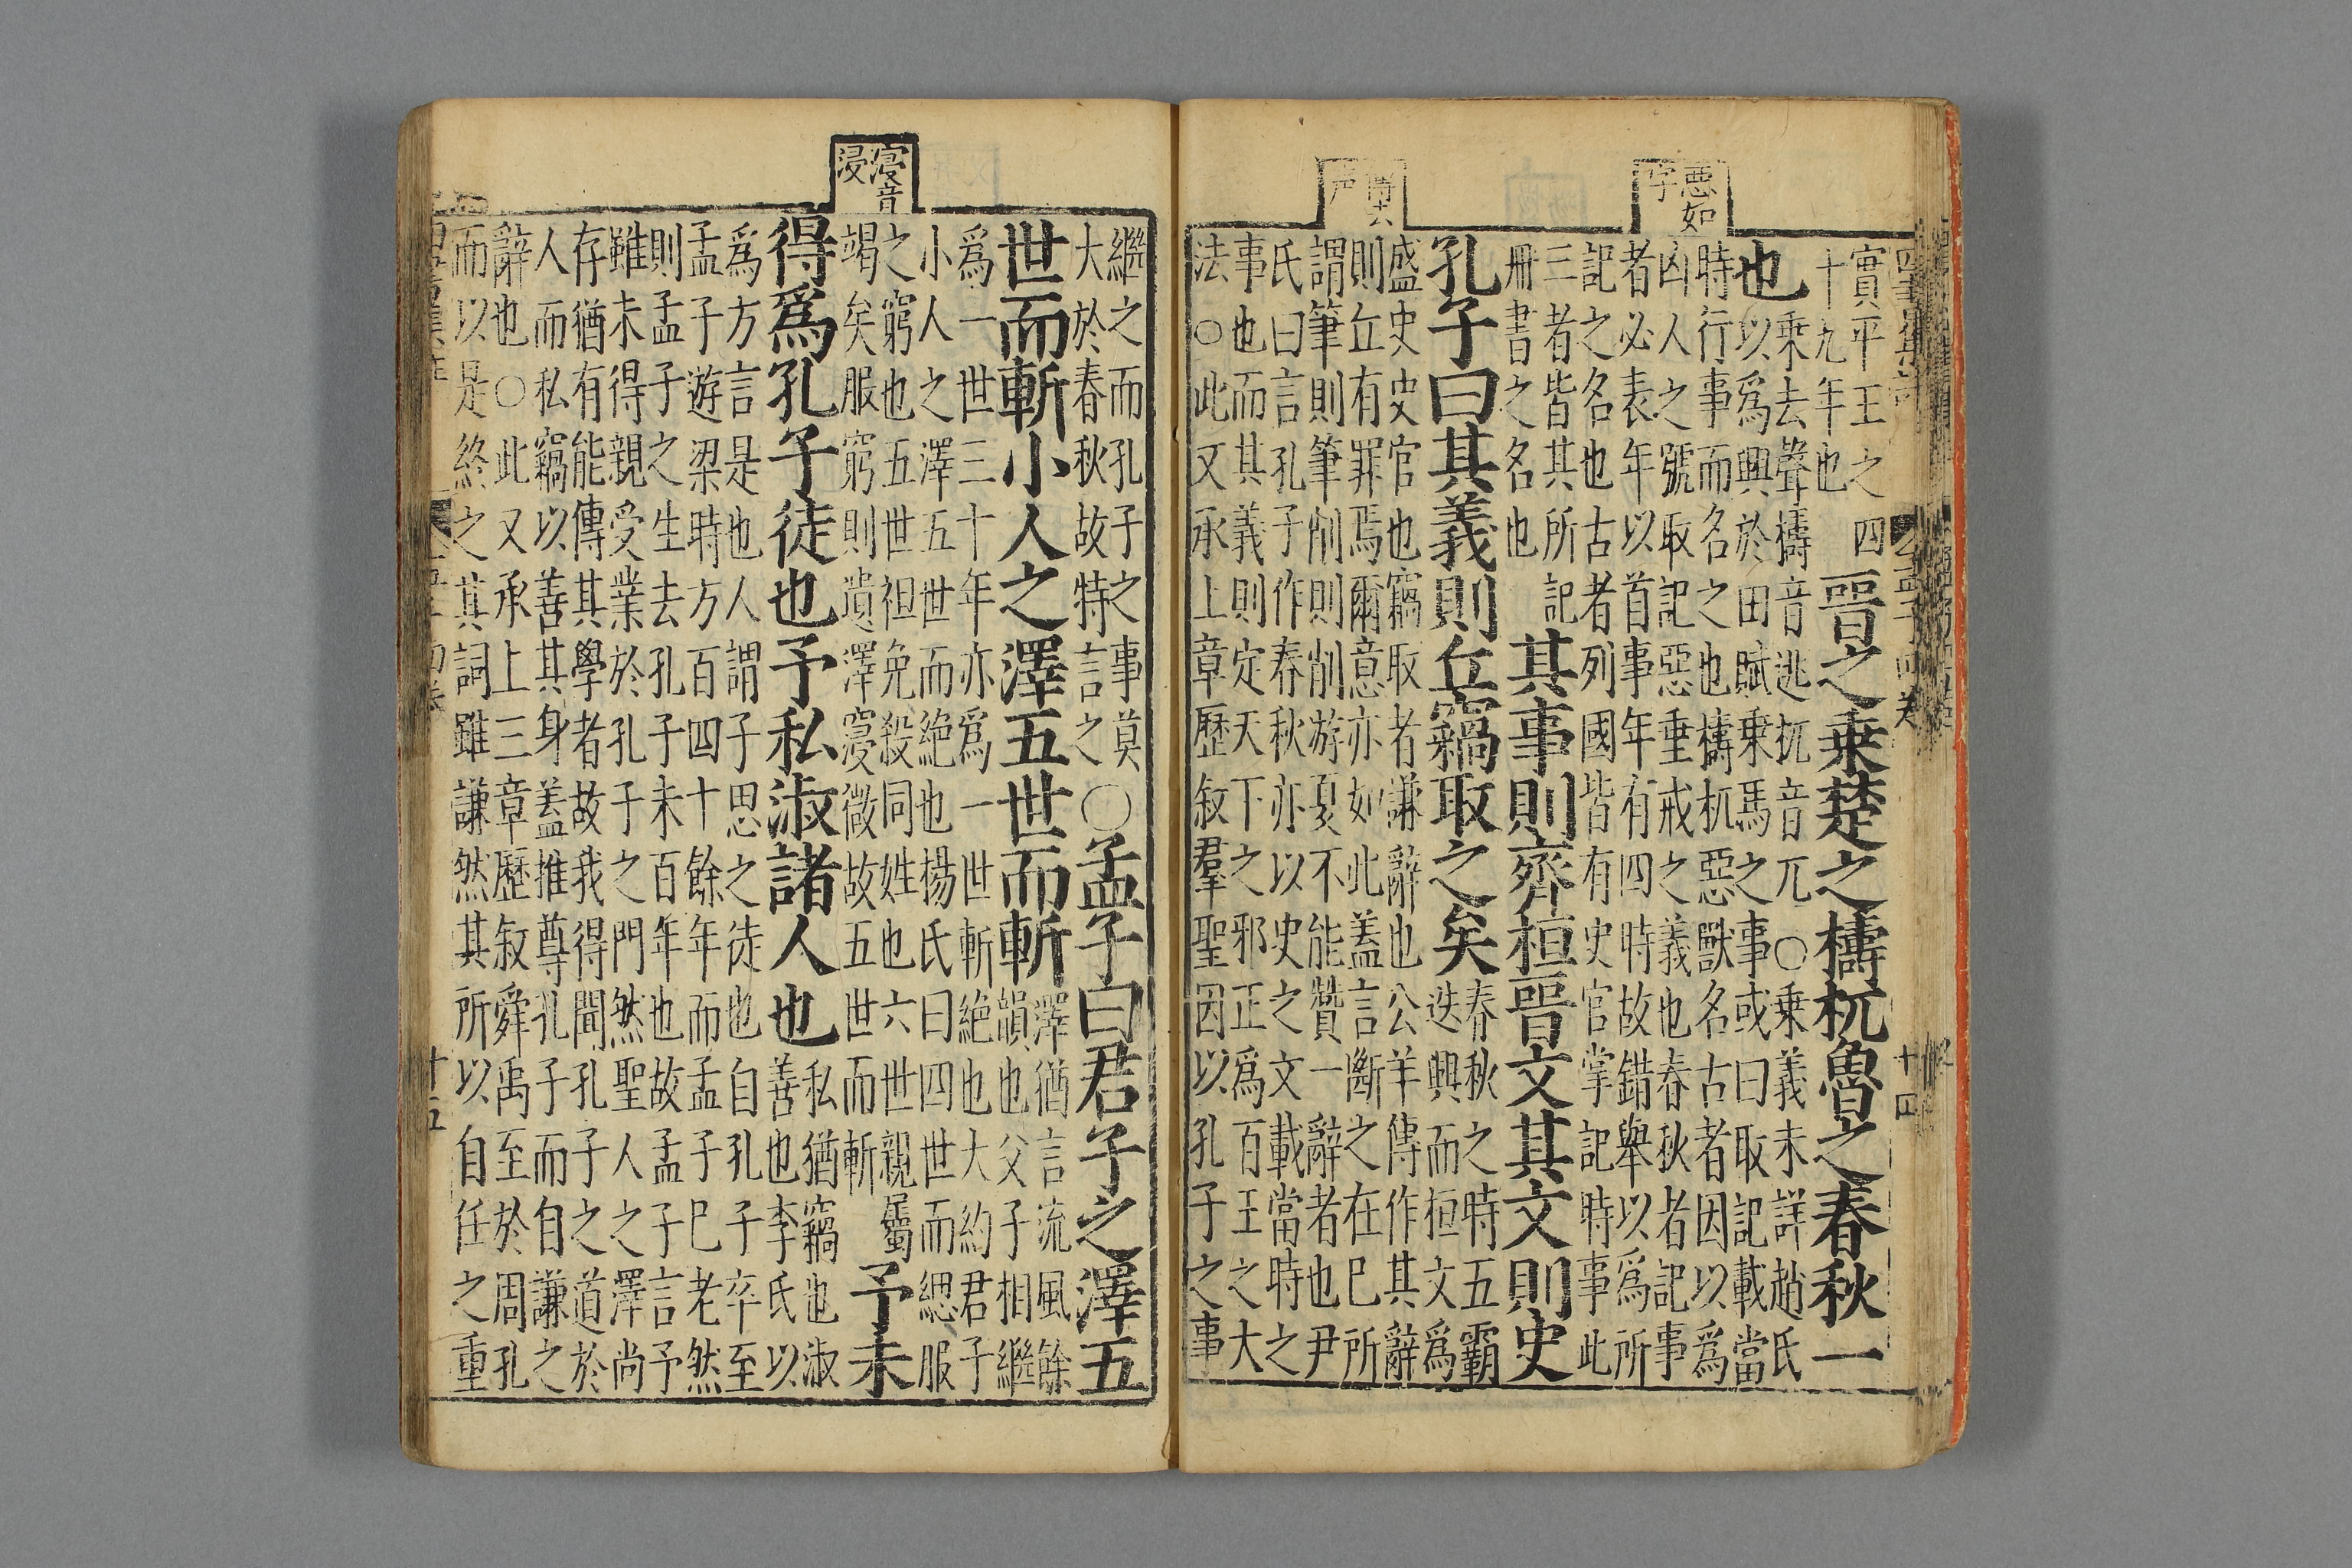 惡如字
實平王之四
十九年也
晉之乗楚之檮杌魯之春秋一
也
乗去聲檮音逃杌音兀○乗義未詳趙氏
以爲興於田賦乗馬之事或曰取記載當
時行事而名之也檮杌惡獸名古者因以爲
凶人之號取記惡垂戒之義也春秋者記事
者必表年以首事年有四時故錯舉以爲所
記之名也古者列國皆有史官掌記時事此
三者皆其所記
册書之名也
其事則齊桓晉文其文則史
孔子曰其義則丘竊取之矣
春秋之時五霸
迭興而桓文爲
盛史史官也竊取者謙辭也公羊傳作其辭
則丘有罪焉爾意亦如此蓋言斷之在已所
謂筆則筆削則削游夏不能贊一辭者也尹
氏曰言孔子作春秋亦以史之文載當時之
事也而其義則定天下之邪正爲百王之大
法○此又承上章歷敘羣聖因以孔子之事
繼之而孔子之事莫
大於春秋故特言之
○孟子曰君子之澤五
世而斬小人之澤五世而斬
澤猶言流風餘
韻也父子相繼
爲一世三十年亦爲一世斬絶也大約君子
小人之澤五世而絶也楊氏曰四世而緦服
之窮也五世袒免殺同姓也六世親屬
竭矣服窮則遺澤寖微故五世而斬
予未
寖音浸
得爲孔子徒也予私淑諸人也
私猶竊也淑
善也李氏以
爲方言是也人謂子思之徒也自孔子卒至
孟子遊梁時方百四十餘年而孟子已老然
則孟子之生去孔子未百年也故孟子言予
雖未得親受業於孔子之門然聖人之澤尚
存猶有能傳其學者故我得聞孔子之道於
人而私竊以善其身蓋推尊孔子而自謙之
辭也○此又承上三章歷敘舜禹至於周孔
而以是終之其詞雖謙然其所以自任之重